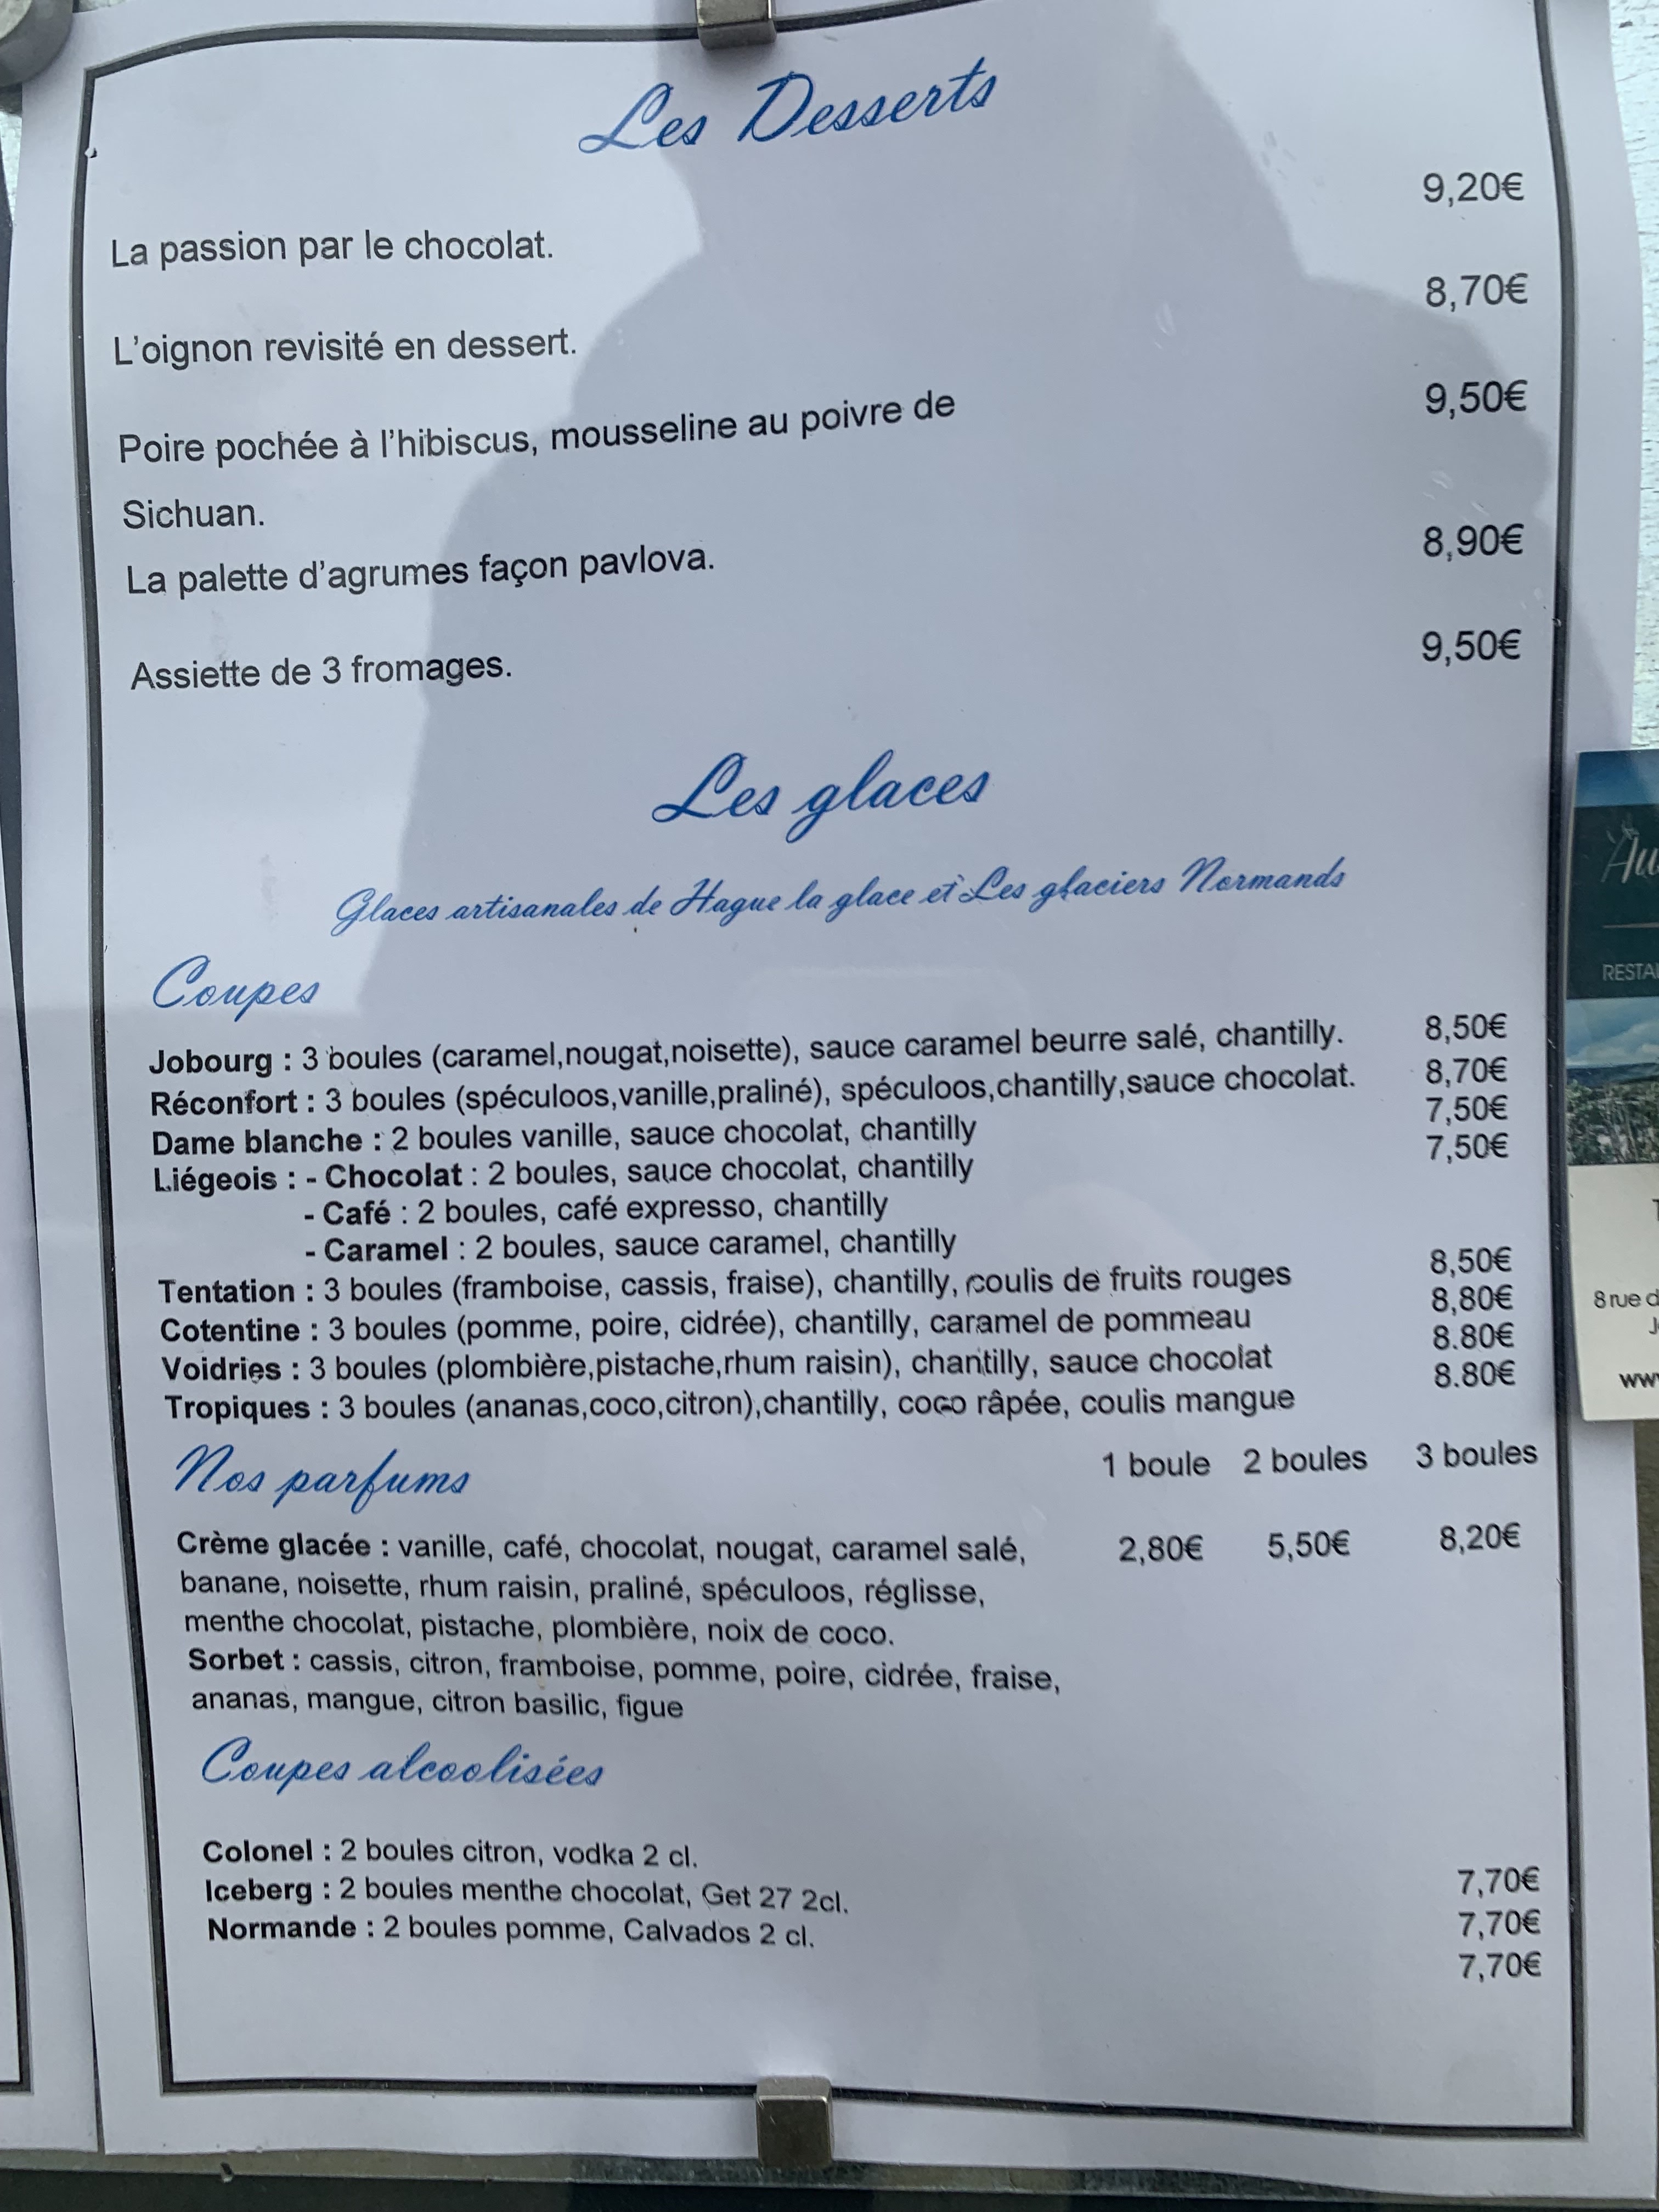 Les Desserts
La passion par le chocolat. 9,20€
L'oignon revisité en dessert. 8,70€
Poire pochée à l'hibiscus, mousseline au poivre de 9,50€
Sichuan.
La palette d'agrumes façon pavlova. 8,90€
Assiette de 3 fromages. 9,50€
Les glaces
Glaces artisanales de Hague la glace et Les glaciers Normands
Coupes
Jobourg : 3 boules (caramel,nougat,noisette), sauce caramel beurre salé, chantilly. 8,50€
Réconfort : 3 boules (spéculoos,vanille,praliné), spéculoos,chantilly,sauce chocolat. 8,70€
Dame blanche : 2 boules vanille, sauce chocolat, chantilly 7,50€
Liégeois : - Chocolat : 2 boules, sauce chocolat, chantilly 7,50€
- Café : 2 boules, café expresso, chantilly
- Caramel : 2 boules, sauce caramel, chantilly
Tentation : 3 boules (framboise, cassis, fraise), chantilly, coulis de fruits rouges 8,50€
Cotentine : 3 boules (pomme, poire, cidrée), chantilly, caramel de pommeau 8,80€
Voidries : 3 boules (plombière,pistache,rhum raisin), chantilly, sauce chocolat 8.80€
Tropiques : 3 boules (ananas,coco,citron),chantilly, coco râpée, coulis mangue 8.80€
Nos parfums 1 boule 2 boules 3 boules
Crème glacée : vanille, café, chocolat, nougat, caramel salé, 2,80€ 5,50€ 8,20€
banane, noisette, rhum raisin, praliné, spéculoos, réglisse,
menthe chocolat, pistache, plombière, noix de coco.
Sorbet : cassis, citron, framboise, pomme, poire, cidrée, fraise,
ananas, mangue, citron basilic, figue
Coupes alcoolisées
Colonel : 2 boules citron, vodka 2 cl. 7,70€
Iceberg : 2 boules menthe chocolat, Get 27 2cl. 7,70€
Normande : 2 boules pomme, Calvados 2 cl. 7,70€
Au
RESTA
8 rue d
www